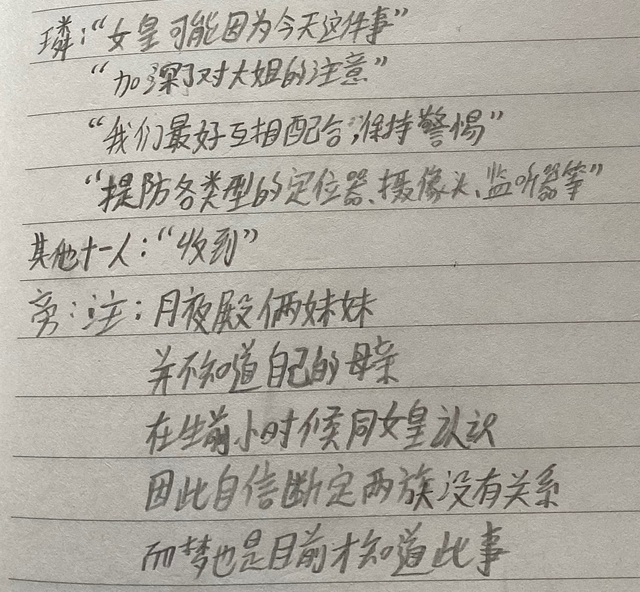 璘：“女皇可能因为今天这件事”
“加深了对大姐的注意”
“我们最好互相配合，保持警惕”
“提防各类型的定位器、摄像头、监听器等”
其他十一人：“收到”
旁：注：月夜殿俩妹妹
并不知道自己的母亲
在生前小时候同女皇认识
因此自信断定两族没有关系
而梦也是目前才知道此事